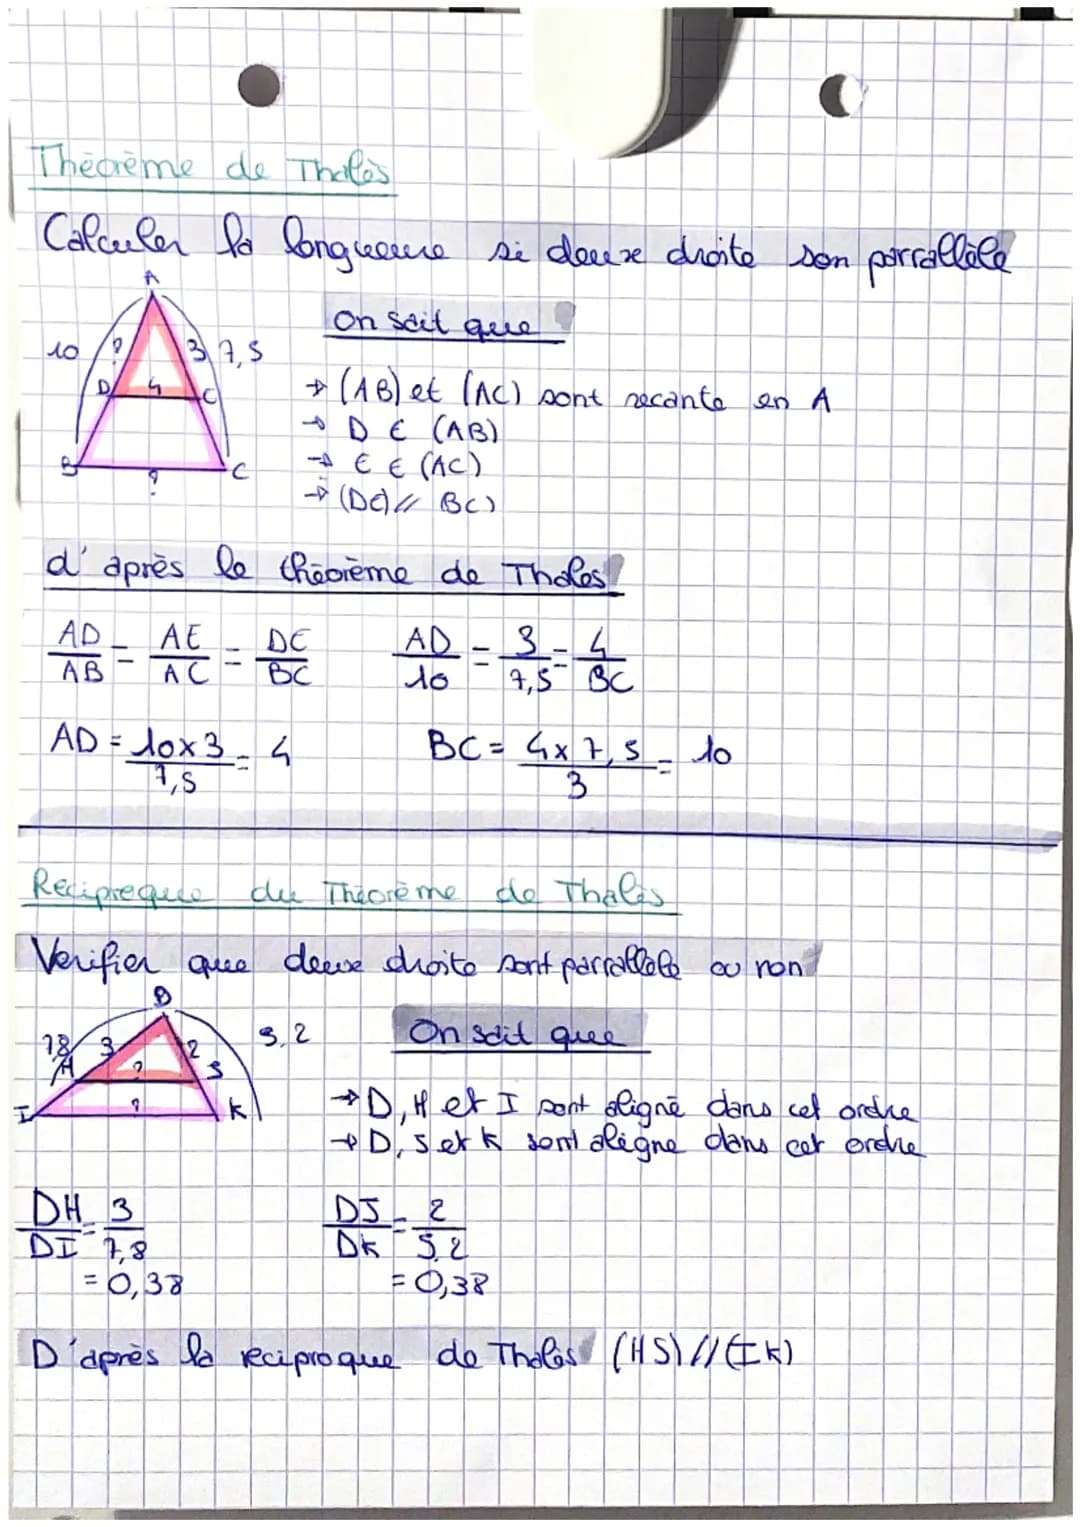 Théorème de Thalès
Calculer la longueure si deuxe droite son parrallèle
A
10 ? 3 7,5
D 4 C
B ? C
On sait que
→ (AB) et (AC) sont secante en A
→ D ∈ (AB)
→ E ∈ (AC)
→ (DE) // BC)
d'après le théorème de Thales
AD/AB = AE/AC = DE/BC AD/10 = 3/7,5 = 4/BC
AD = 10x3/7,5 = 4 BC = 4x7,5/3 = 10
Reciproque du Théorème de Thalès
Verifier que deuxe droite sont parrallele ou non
D
78 3 2 5,2
H ? S
I ? K
On sait que
→ D, H et I sont aligné dans cet ordre
→ D, S et K sont aligne dans cet ordre
DH/DI = 3/7,8 DS/DK = 2/5,2
= 0,38 = 0,38
D'après la reciproque de Thalès (HS) // (IK)